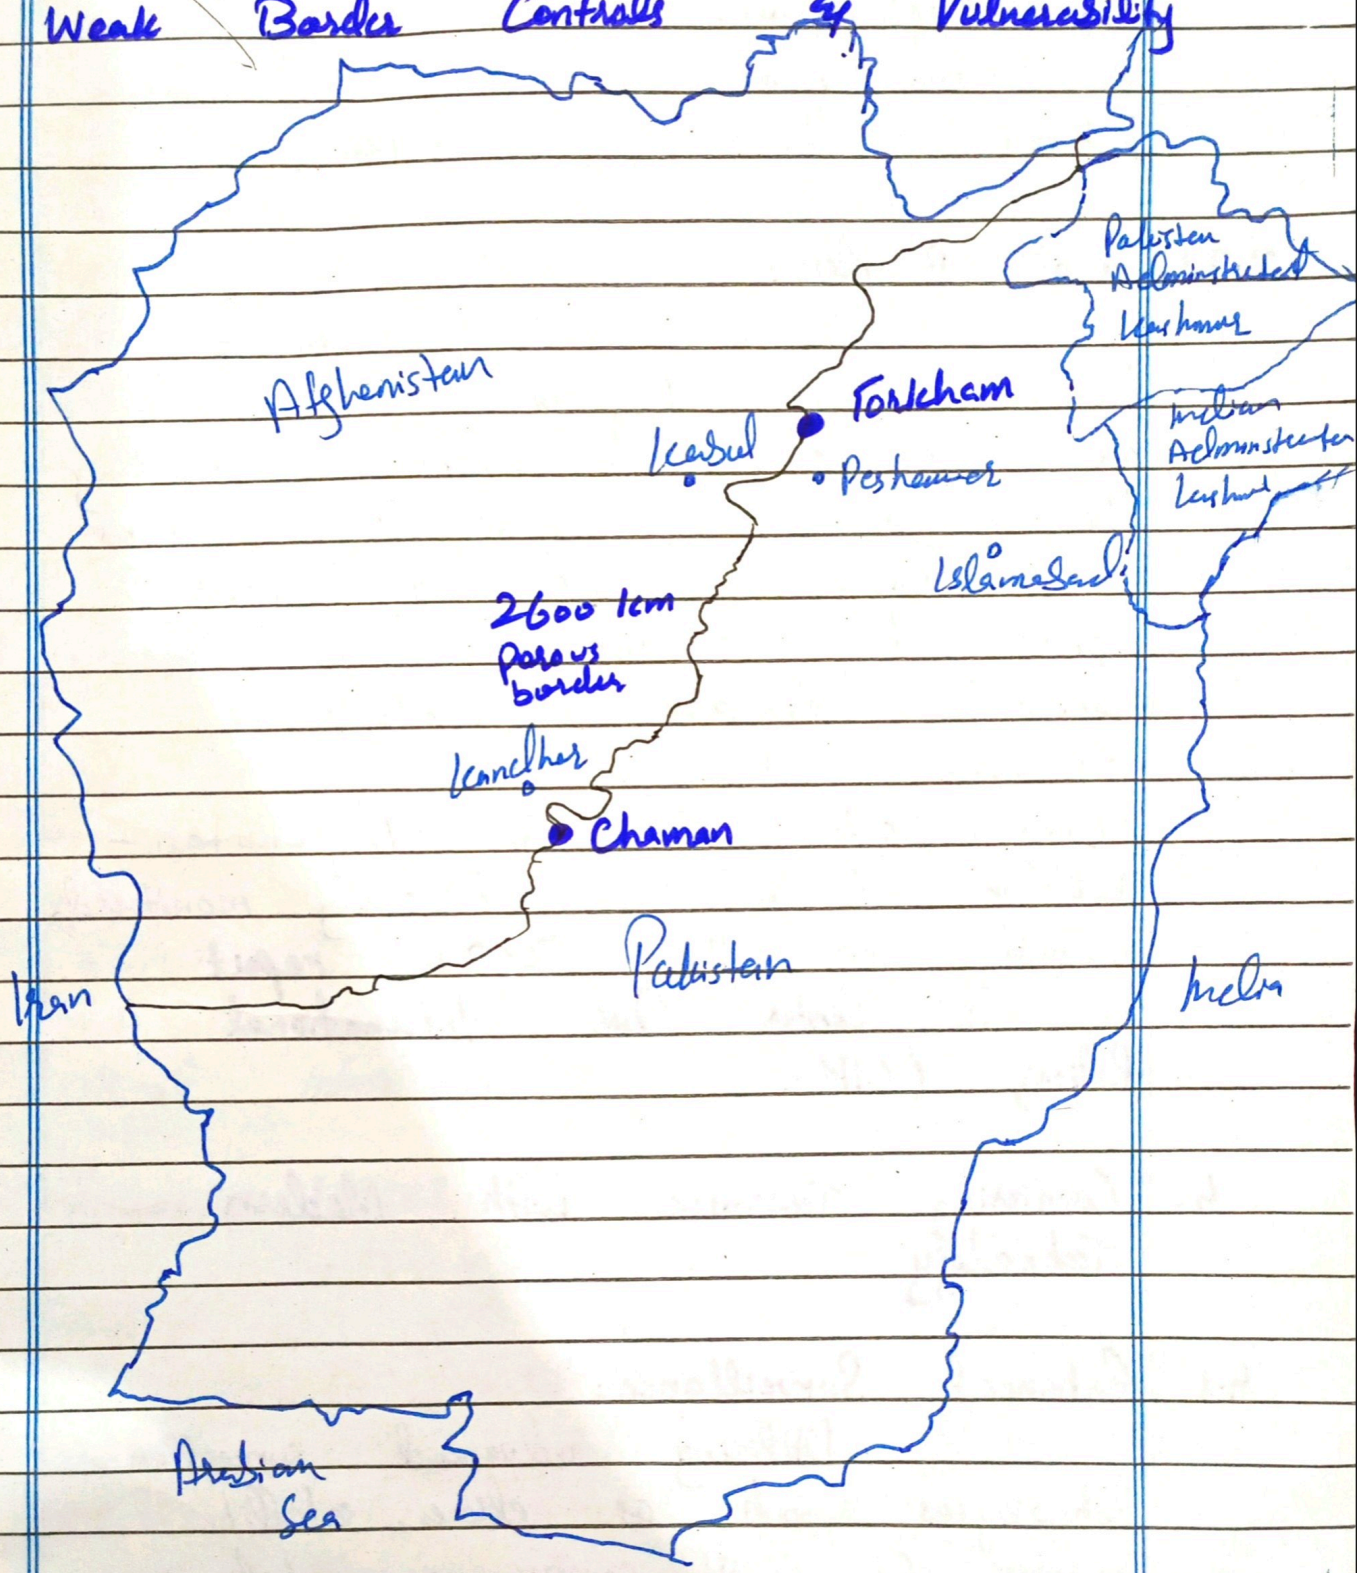 Weak Border Controls & Vulnerability
Pakistan
Administrated
Kashmir
Afghanistan
Torkham
Indian
Administrated
Kashmir
Kabul
Peshawar
Islamabad
2600 km
porous
border
Kandhar
Chaman
Pakistan
Iran
India
Arabian
Sea